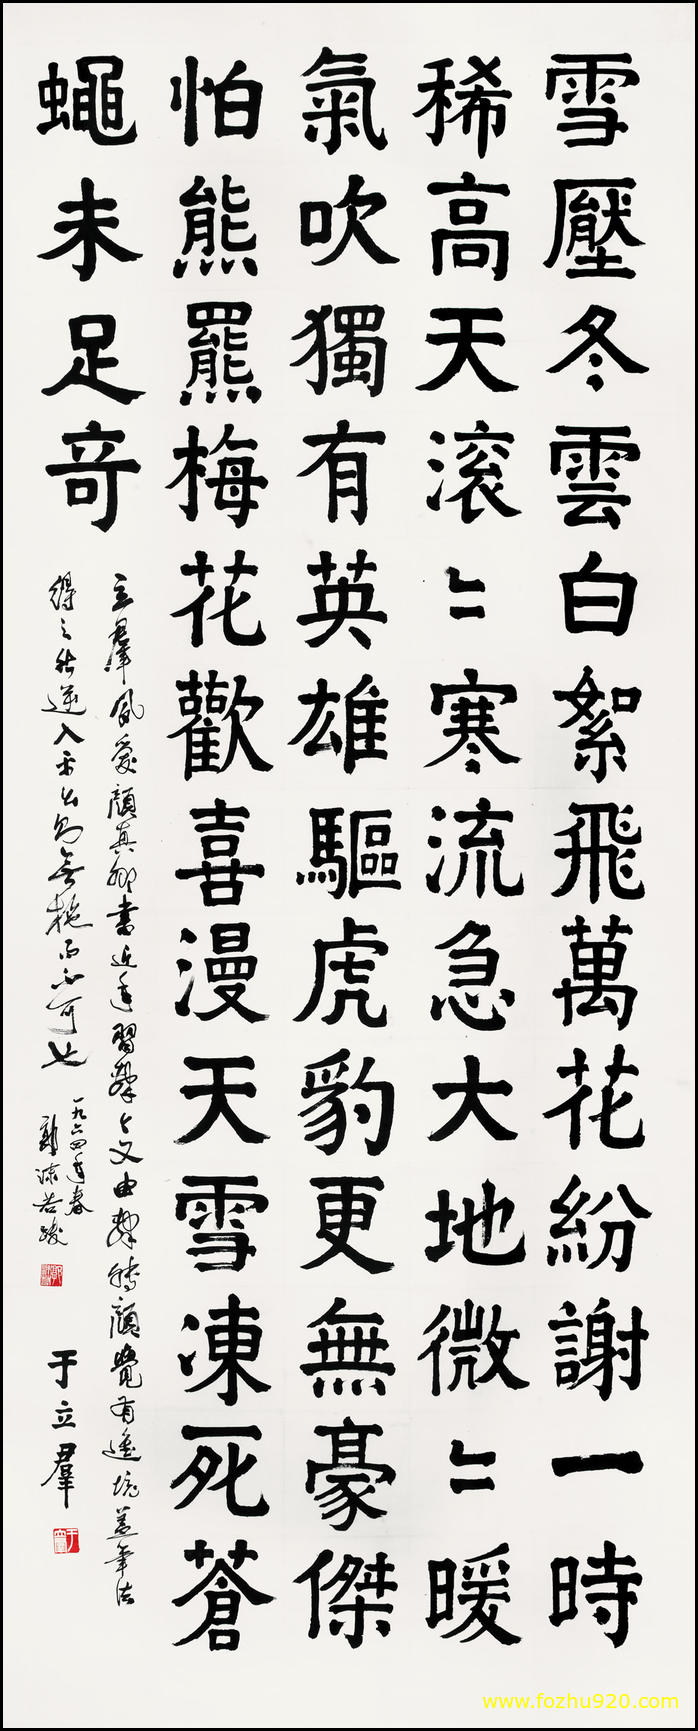 雪壓冬雲白絮飛萬花紛謝一時
稀高天滚〻寒流急大地微〻暖
氣吹獨有英雄驅虎豹更無豪傑
怕熊羆梅花歡喜漫天雪凍死蒼
蠅未足奇
立羣夙愛顏真卿書近年習隸今又由隸轉顏覺有進境蓋筆法
得之於逆入平出無施而不可也
一九六四年春
郭沫若跋
于立羣
www.fozhu920.com